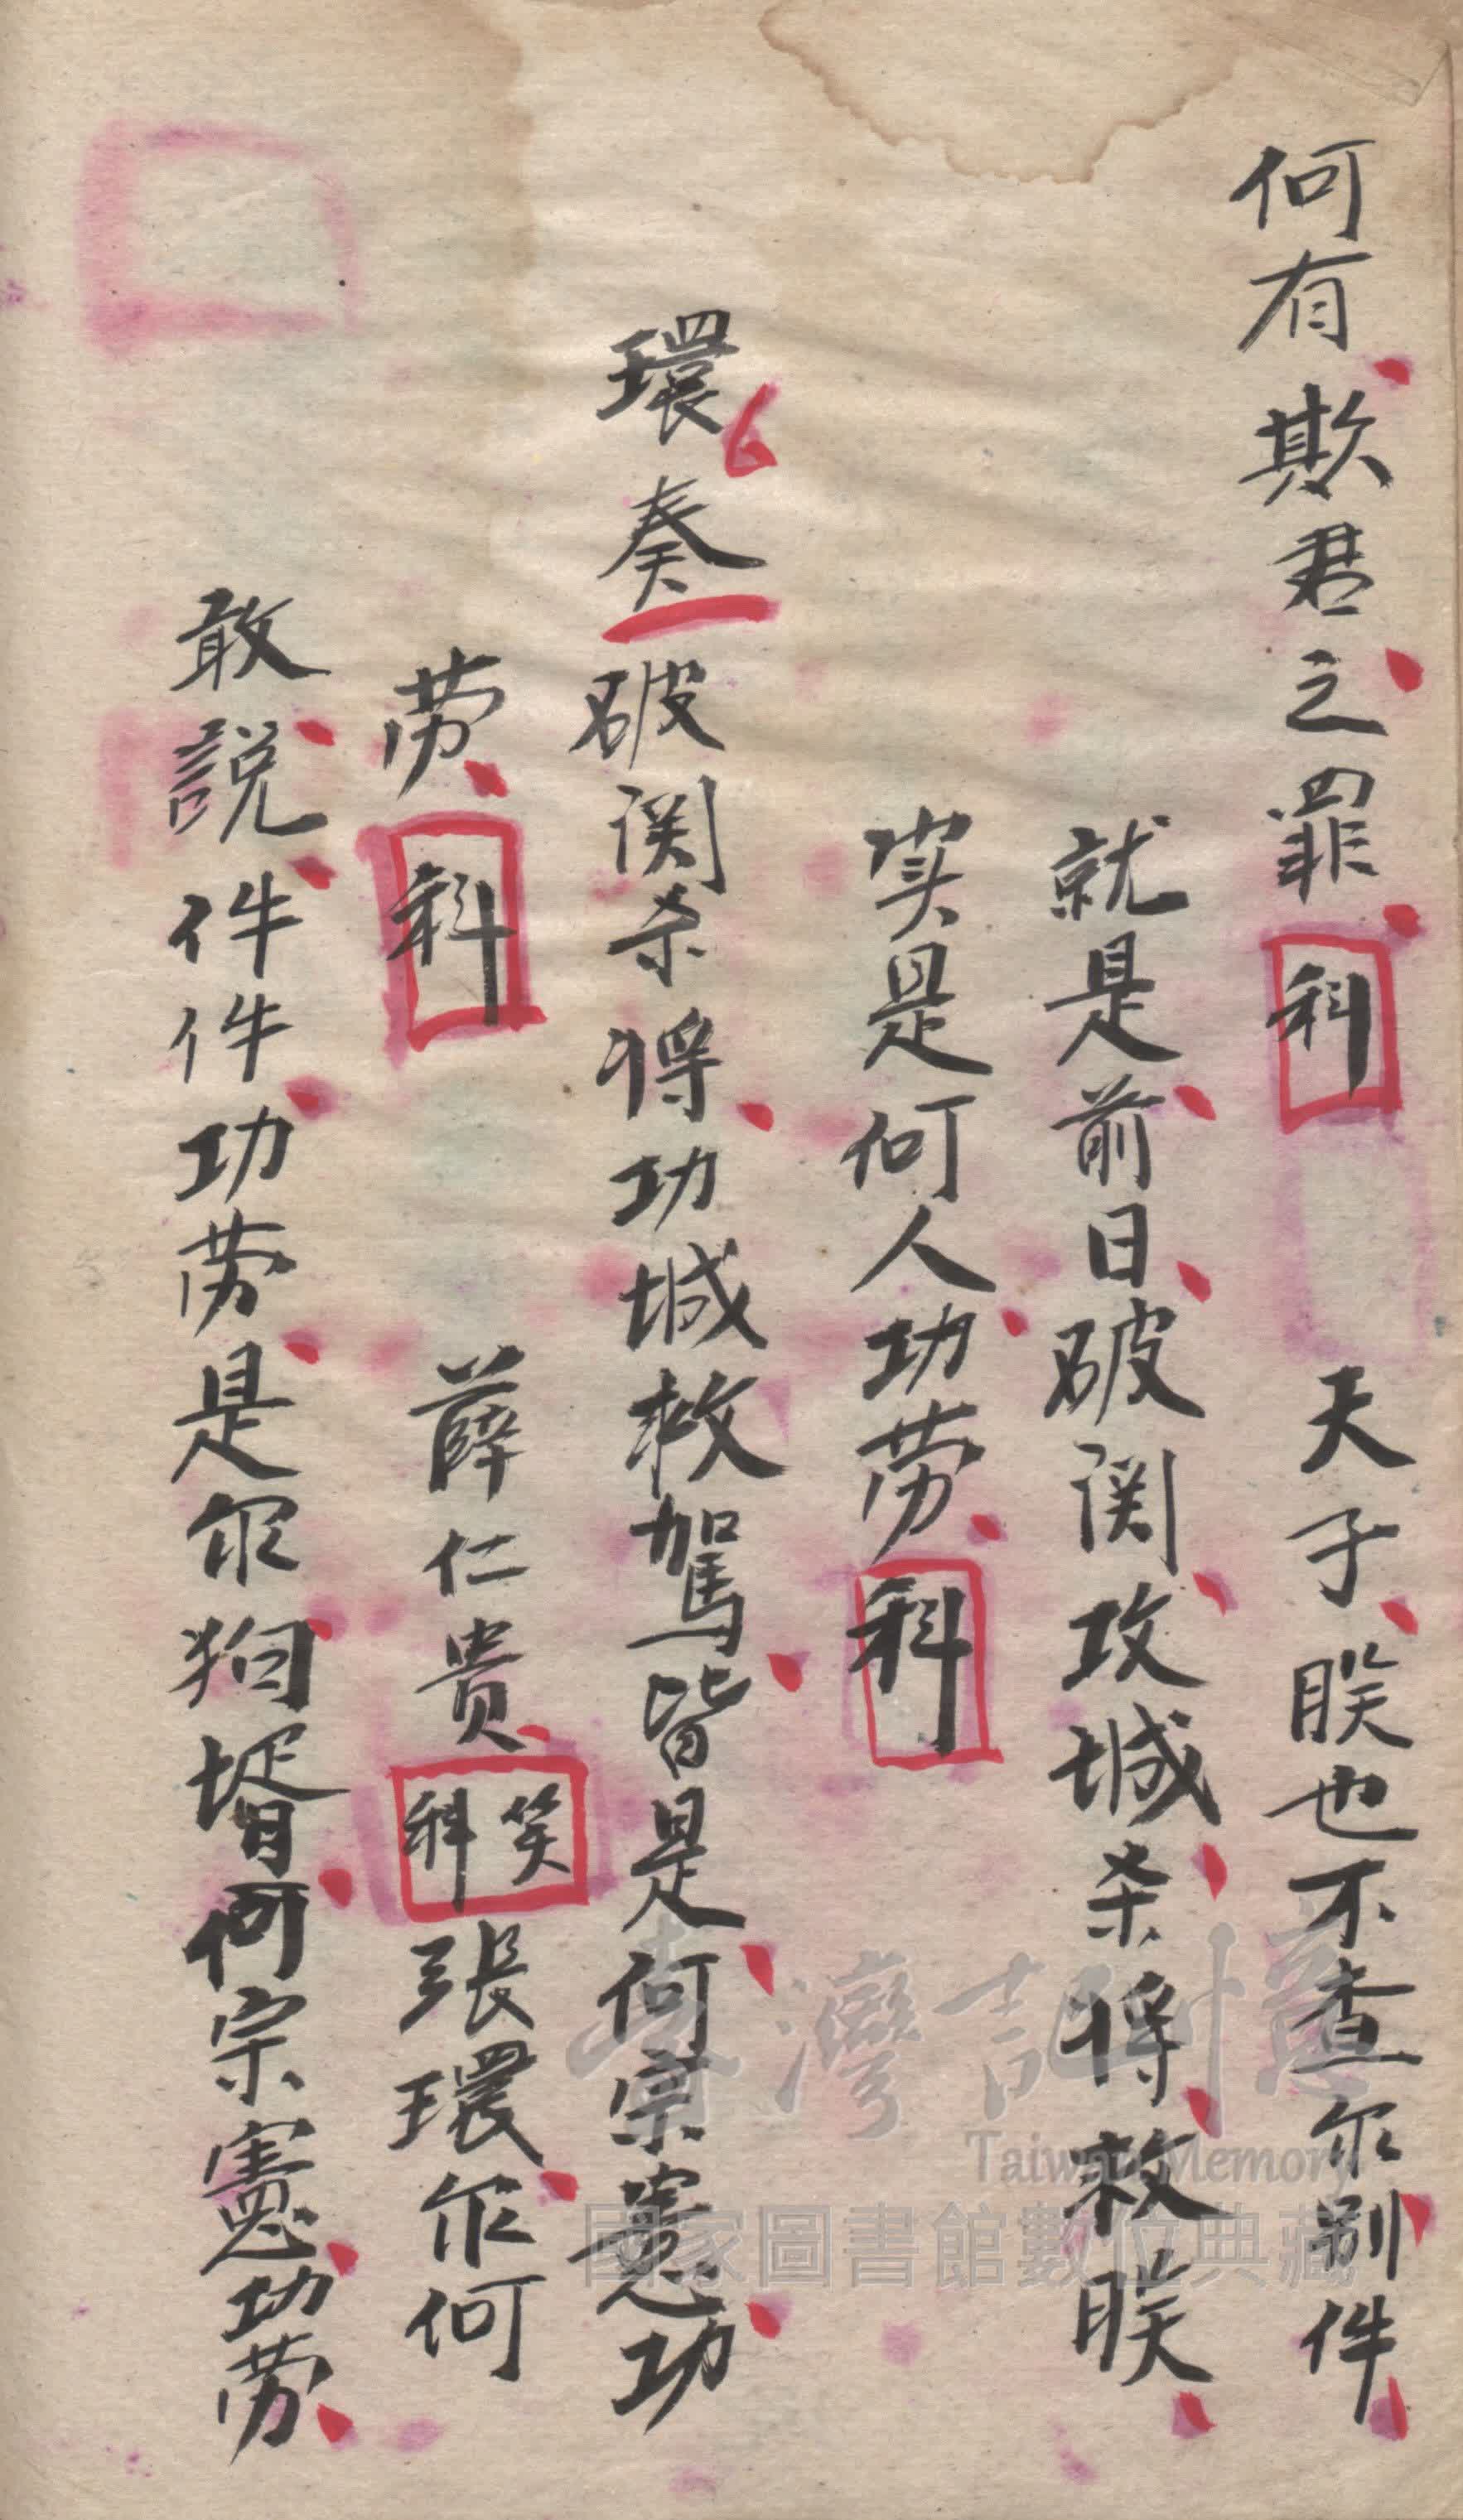 何有欺君之罪科 天子朕也不查尔别件
就是前日破関攻城杀将救朕
实是何人功劳科
環奏破関杀将功城救駕皆是何宗憲功
劳科 薛仁贵笑科張環尔何
敢説件件功劳是尔狗壻何宗憲功劳
臺灣記憶
Taiwan Memory
國家圖書館數位典藏